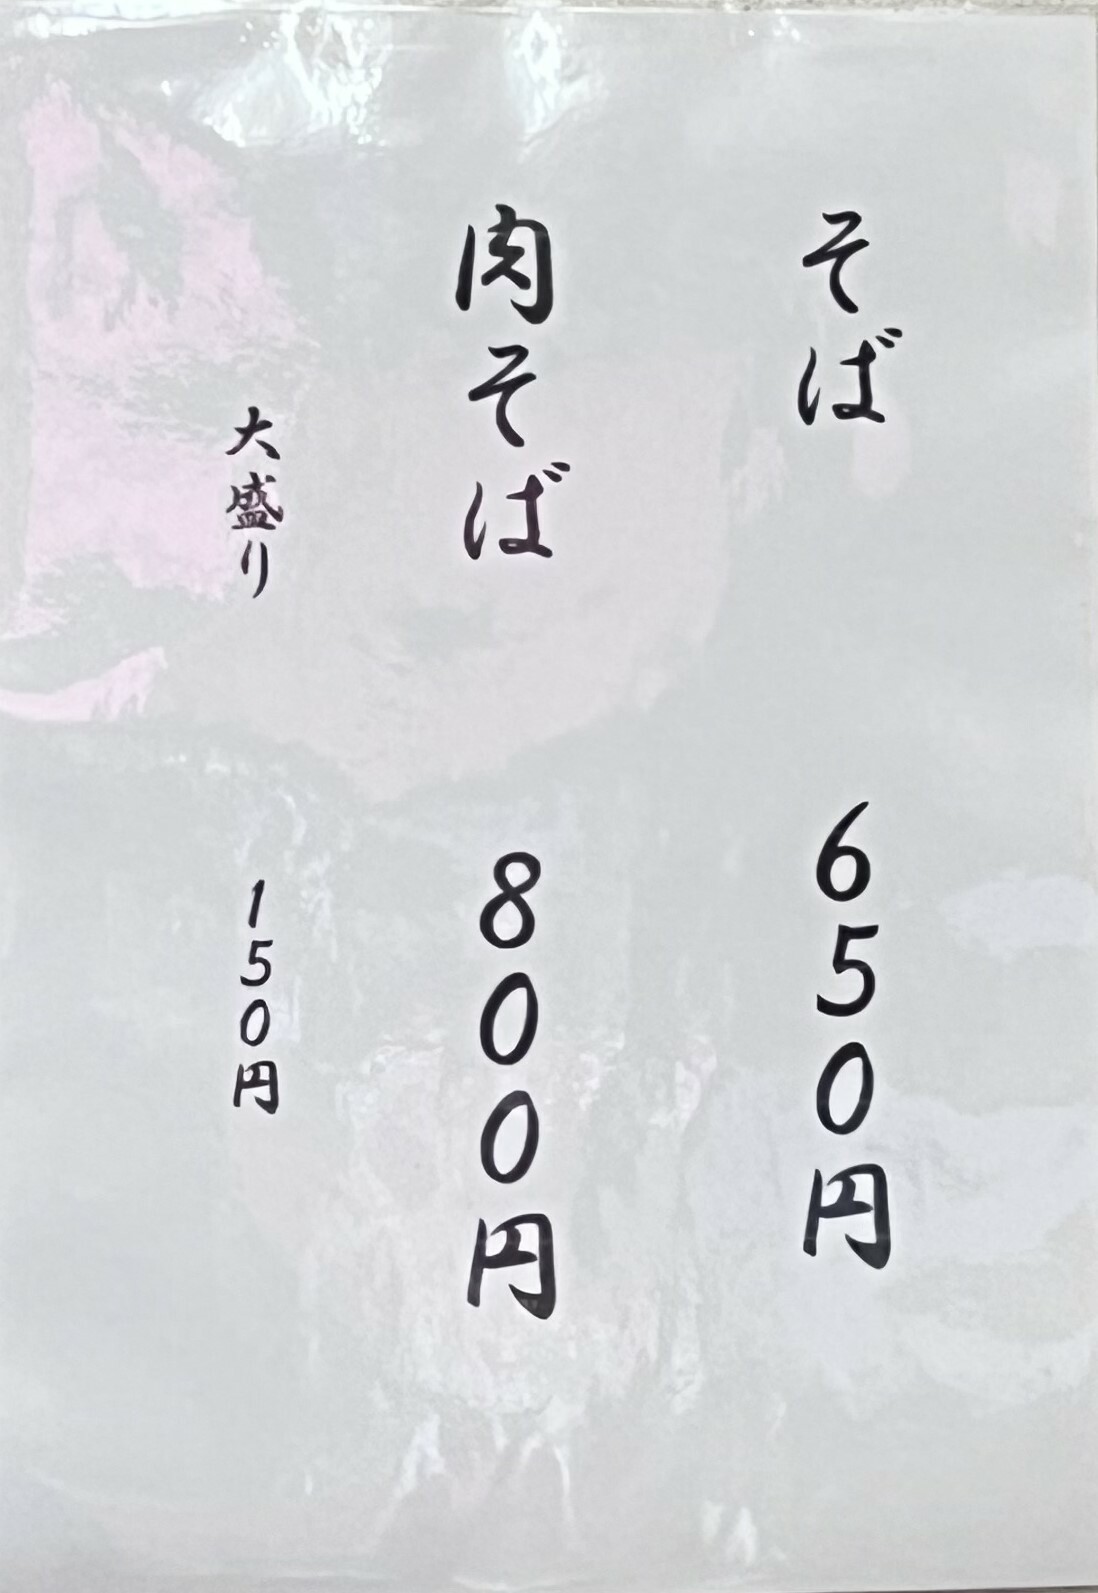 そば 650円
肉そば 800円
大盛り 150円